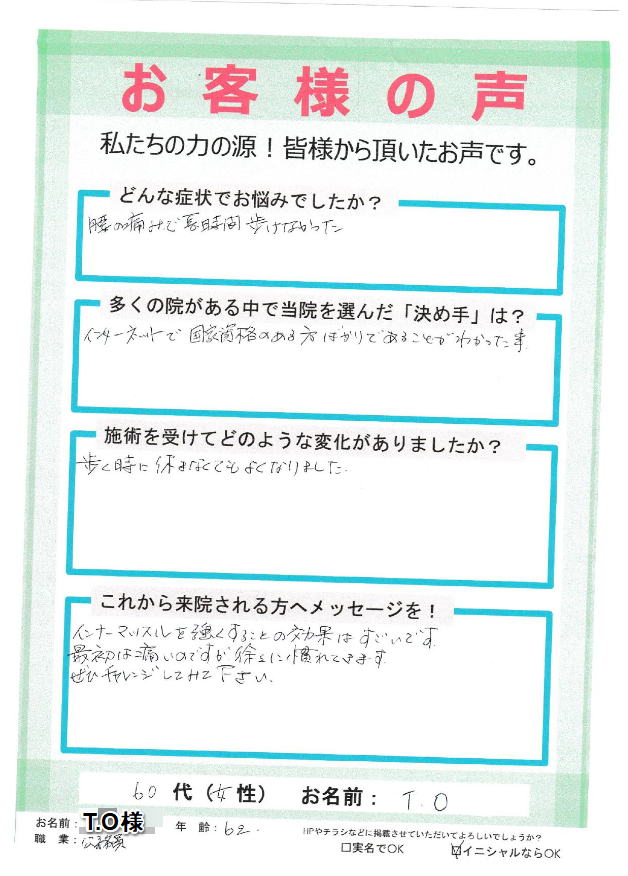 お客様の声
私たちの力の源！皆様から頂いたお声です。
どんな症状でお悩みでしたか？
腰の痛みで長時間歩けなかった
多くの院がある中で当院を選んだ「決め手」は？
インターネットで国家資格のある方ばかりであることがわかった事
施術を受けてどのような変化がありましたか？
歩く時に休まなくてもよくなりました.
これから来院される方へメッセージを！
インナーマッスルを強くすることの効果はすごいです.
最初は痛いのですが徐々に慣れてきます
ぜひチャレンジしてみて下さい.
60代（女性） お名前： T.O
お名前： T.O様 年 齢：62. HPやチラシなどに掲載させていただいてよろしいでしょうか？
職 業： 公務員 □実名でOK ☑イニシャルならOK